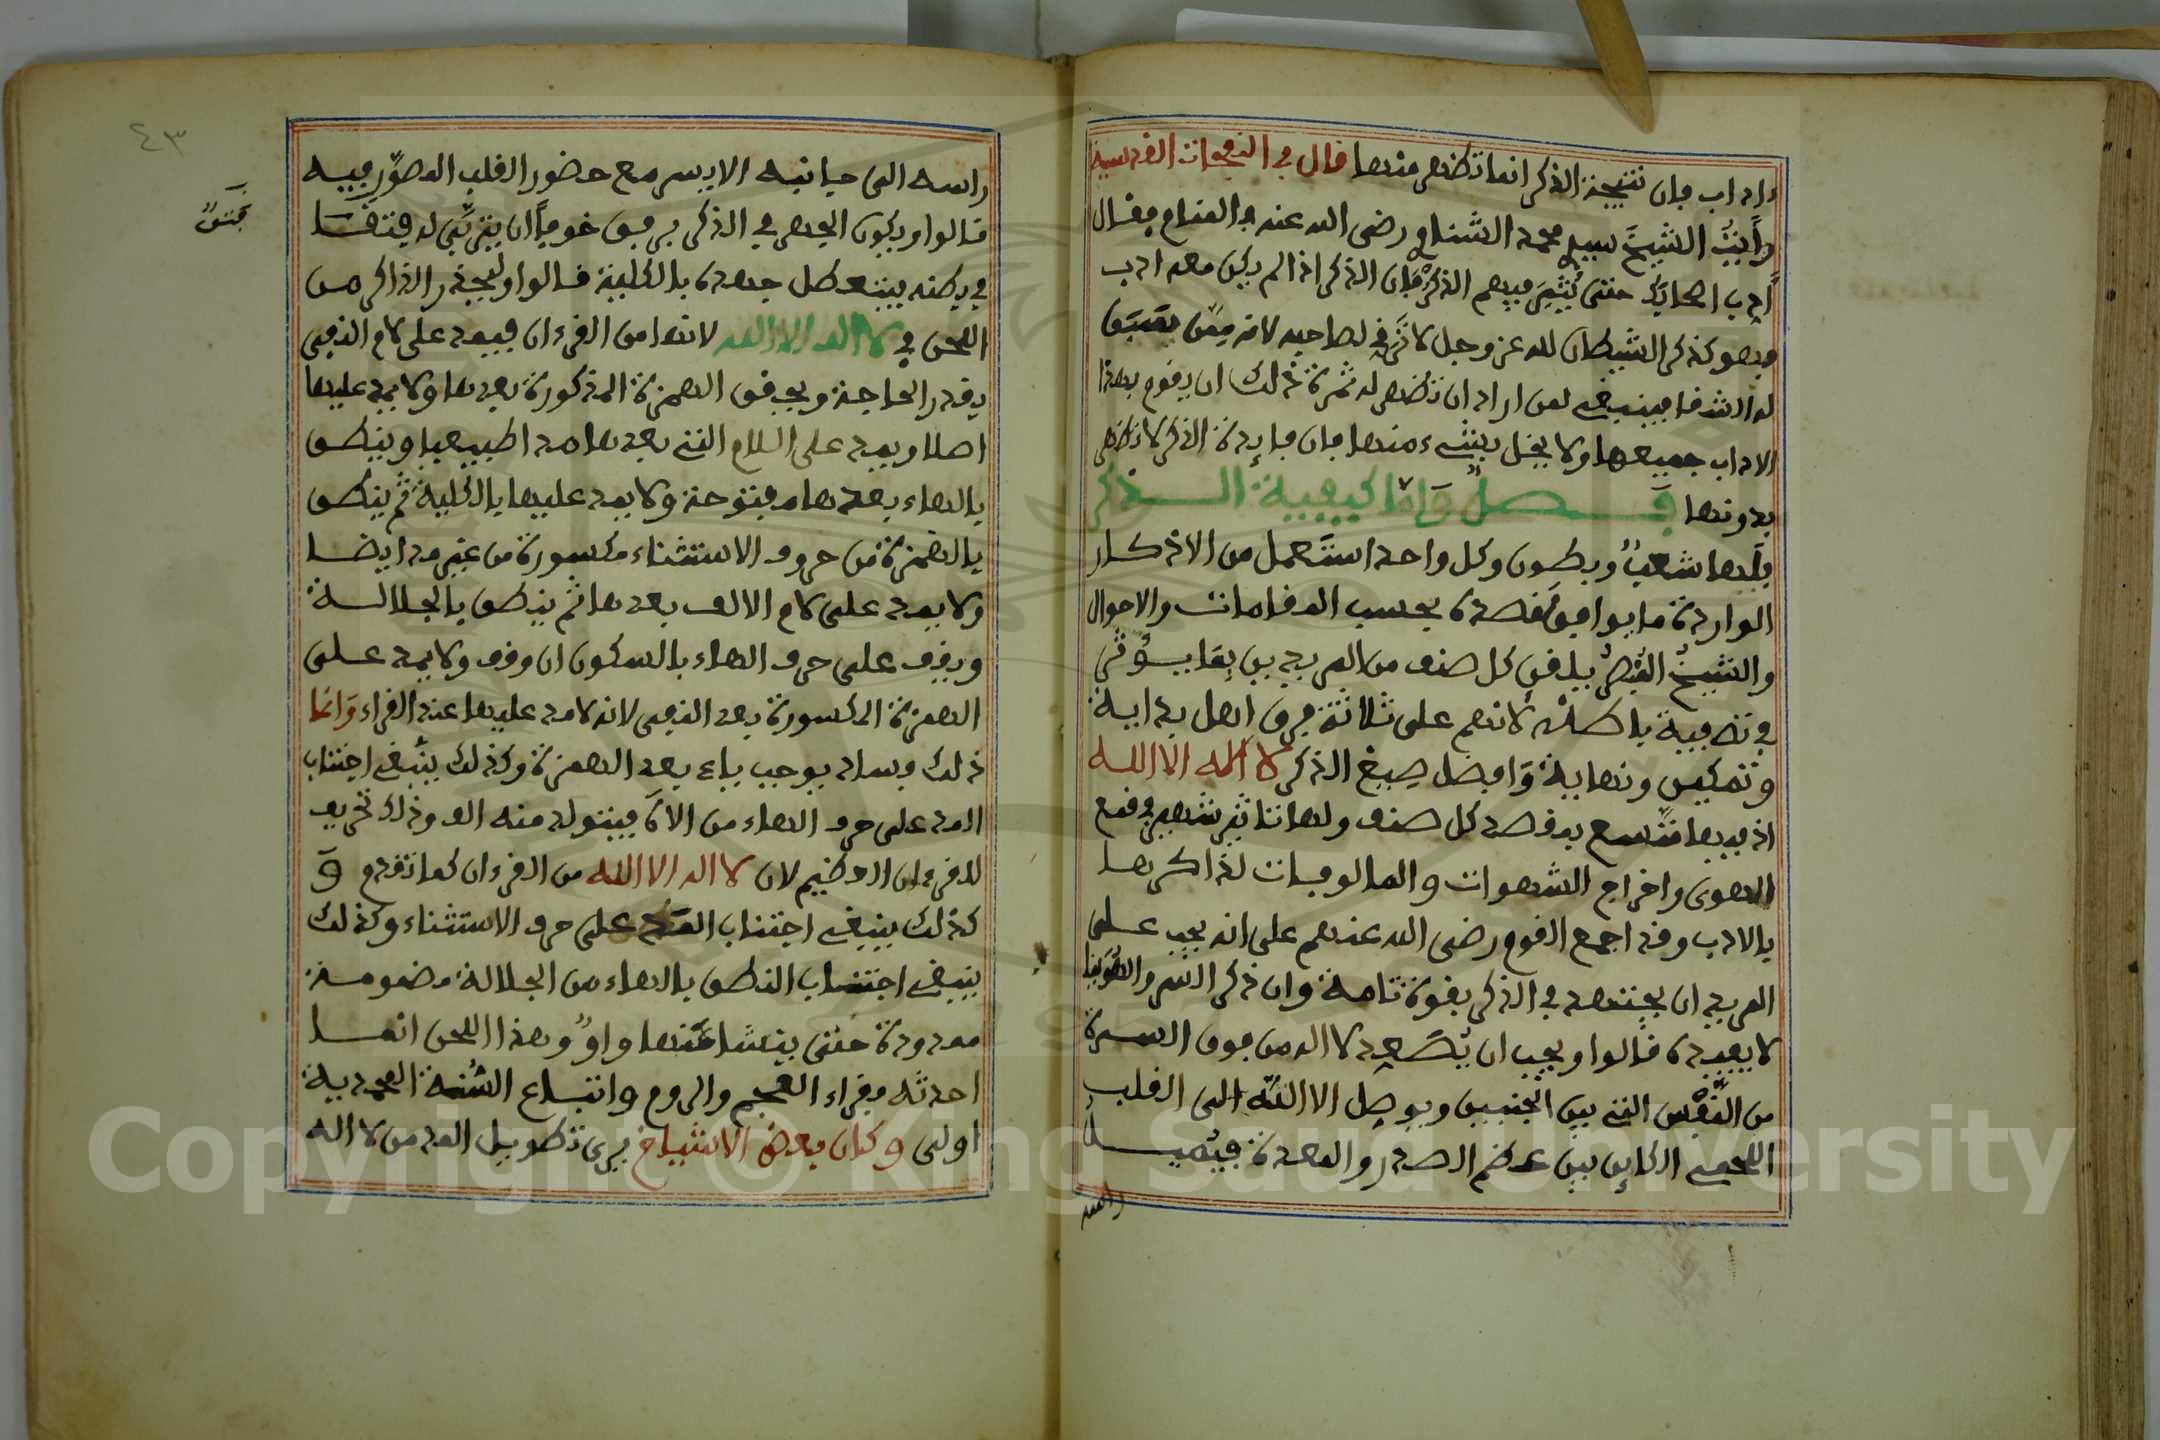 ءاداب فإن نتيجة الذكر انما تظهر منها قال في النفحات القدسية
رأيت الشيخ سيدي محمد الشناوي رضى الله عنه في المنام فقال
أدب اصحابك حتى يثمر فيهم الذكر فإن الذكر اذا لم يكن معه ادب
فهو كذكر الشيطان لله عز وجل لا ترقي لصاحبه لانه ممن يعسى
له الشفا فينبغي لمن اراد ان تظهر له ثمرة ذلك ان يقوم بهذا
الاداب جميعها ولا يخل بشيء منها فإن فايدة الذكر لا تظهر
بدونها فصل واما كيفية الذكر
فلها شعب وبطون وكل واحد استعمل من الاذكار
الواردة ما يوافق قصده بحسب المقامات والاحوال
والشيخ البصر يلقن كل صنف من المريدين بما يؤثر
في تصفية باطنه لانهم على ثلاثة فرق اهل بداية
وتمكين ونهاية وافضل صيغ الذكر لا اله الا الله
اذ فيها متسع يقصد كل صنف ولها تاثير شهير في قمع
الهوى واخراج الشهوات والمالوفات لذاكرها
بالادب وقد اجمع القوم رضى الله عنهم على انه يجب على
المريد ان يجتهد في الذكر بقوة تامة وان ذكر السر والهوينا
لا يفيده قالوا ويجب ان يصعد لا اله من فوق السرة
من النفس التي بين الجنبين ويوصل الا الله الى القلب
اللحمي الكاين بين عظم الصدر والمعدة فيميل
راسه
راسه الى جانبه الايسر مع حضور القلب المصور فيه
قالوا ويكون الجهر في الذكر برفق خوفا ان يتربى له فتقا
في بطنه فيتعطل جهده بالكلية قالوا وليحذر الذاكر من
اللحن في لا اله الا الله لانها من القرءان فيمد على لام النفي
بقدر الحاجة ويحقق الهمزة المذكورة بعدها ولا يمد عليها
اصلا ويمد على اللام التي بعدها مدا طبيعيا وينطق
بالهاء بعدها مفتوحة ولا يمد عليها بالكلية ثم ينطق
بالهمزة من حرف الاستثناء مكسورة من غير مد ايضا
ولا يمد على لام الالف بعدها ثم ينطق بالجلالة
ويقف على حرف الهاء بالسكون ان وقف ولا يمد على
الهمزة المكسورة بعد النفي لانه لا مد عليها عند القراء وانما
ذلك فساد يوجب ياء بعد الهمزة وكذلك ينبغي اجتناب
المد على حرف الهاء من الاه فيتولد منه الف وذلك تحريف
للقرءان العظيم لان لا اله الا الله من القرءان كما تقدم و
كذلك ينبغي اجتناب الفتح على حرف الاستثناء وكذلك
ينبغي اجتناب النطق بالهاء من الجلالة مضمومة
ممدودة حتى ينشا عنها واو وهذا اللحن انما
احدثه فقراء العجم والروم واتباع السنة المحمدية
اولى وكان بعض الاشياخ يرى تطويل المد من لا اله
٤٣
Copyright © King Saud University